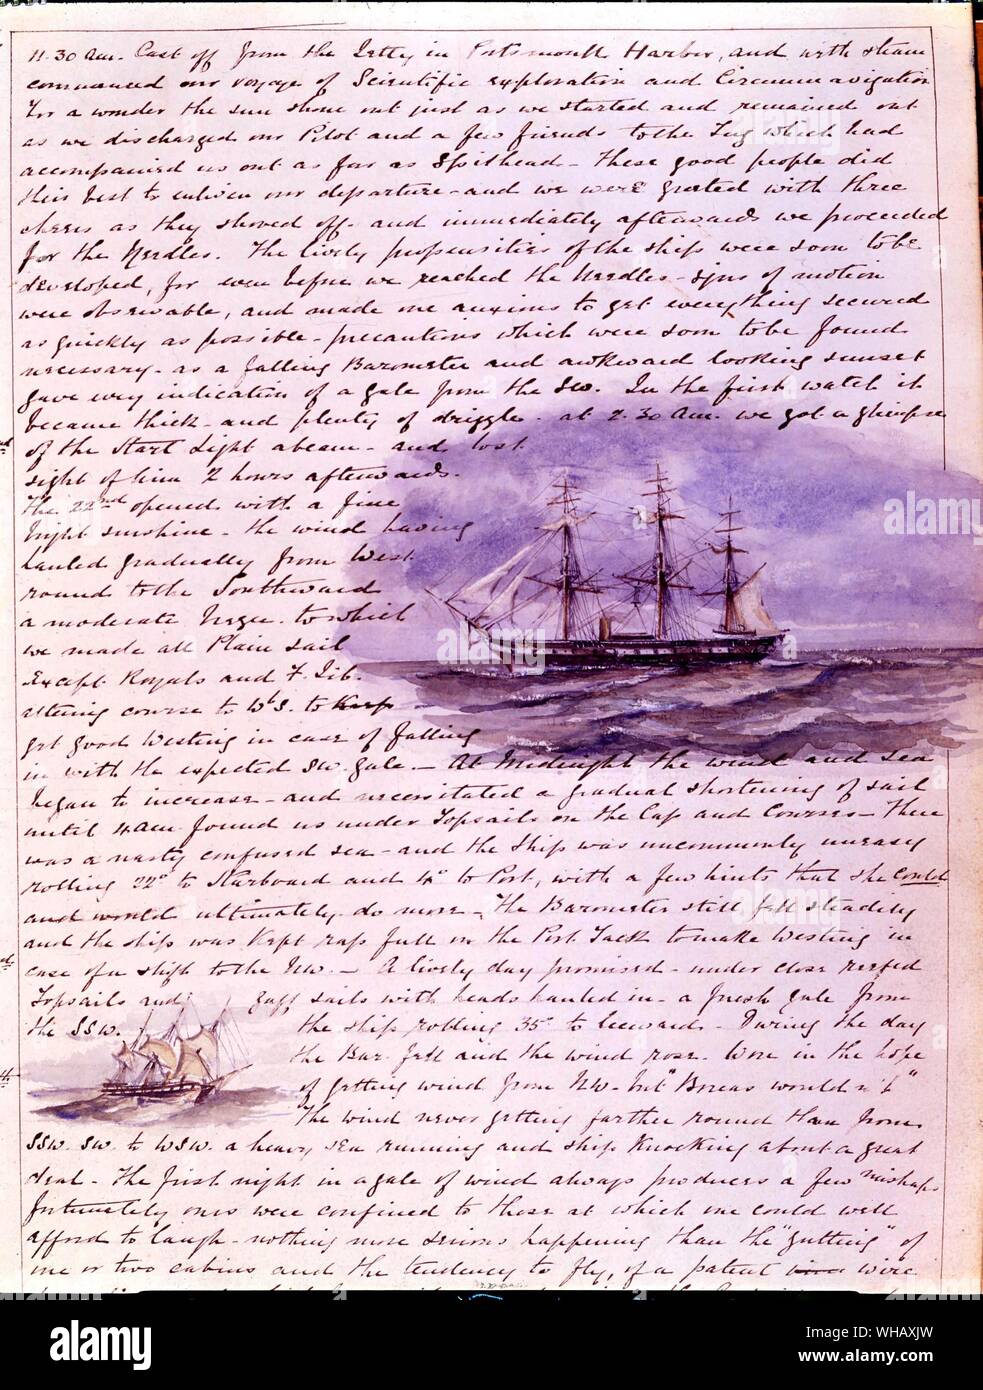 11.30 am. Cast off from the Jetty in Portsmouth Harbor, and with steam
commenced our voyage of Scientific exploration and Circumnavigation
For a wonder the sun shone out just as we started and remained out
as we discharged our Pilot and a few friends to the Tug which had
accompanied us out as far as Spithead – These good people did
their best to enliven our departure – and we were greeted with three
cheers as they shoved off – and immediately afterwards we proceeded
for the Needles. The lively propensities of the ship were soon to be
developed, for even before we reached the Needles – signs of motion
were observable, and made one anxious to get everything secured
as quickly as possible – precautions which were soon to be found
necessary – as a falling Barometer and awkward looking sunset
gave every indication of a gale from the SW. In the first watch it
became thick – and plenty of drizzle – at 2.30 am. we got a glimpse
of the Start Light abeam – and lost
sight of him 2 hours afterwards.
The 22nd opened with a fine
bright sunshine – the wind having
hauled gradually from West
round to the Southward
a moderate breeze – to which
we made all Plain sail
Except Royals and F. Jib.
altering course to WbS. to keep
get good Westing in case of falling
in with the expected SW. gale. – At Midnight the wind and sea
began to increase – and necessitated a gradual shortening of sail
until 4 am found us under Topsails on the Cap and Courses – There
was a nasty confused sea – and the ship was uncommonly uneasy
rolling 22° to Starboard and 4° to Port, with a few hints that she could
and would ultimately do more – The Barometer still fell steadily
and the ship was kept rap full on the Port Tack to make Westing in
case of a shift to the NW. – A lively day promised – under close reefed
Topsails and gaff sails with heads hauled in – a fresh gale from
the SSW. the ship rolling 35° to leewards – During the day
the Bar. fell and the wind rose. Wore in the hope
of getting wind from NW – but "Boreas wouldn't"
The wind never getting farther round than from
SSW. SW. to WSW. a heavy sea running and ship knocking about a great
deal – The first night in a gale of wind always produces a few mishaps
fortunately ours were confined to those at which one could well
afford to laugh – nothing more serious happening than the "gutting" of
one or two cabins and the tendency to fly, of a patent wire
alamy
alamy
alamy
alamy
alamy
alamy
alamy
alamy
Image ID: WHAXJW
www.alamy.com